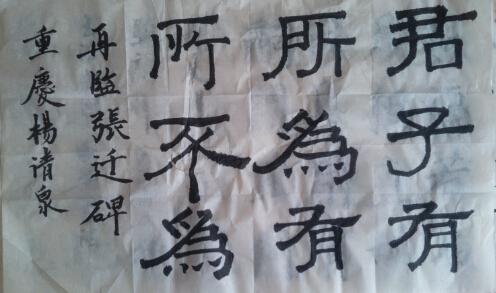 君子有
所為有
所不為
再臨張迁碑
重慶楊清泉